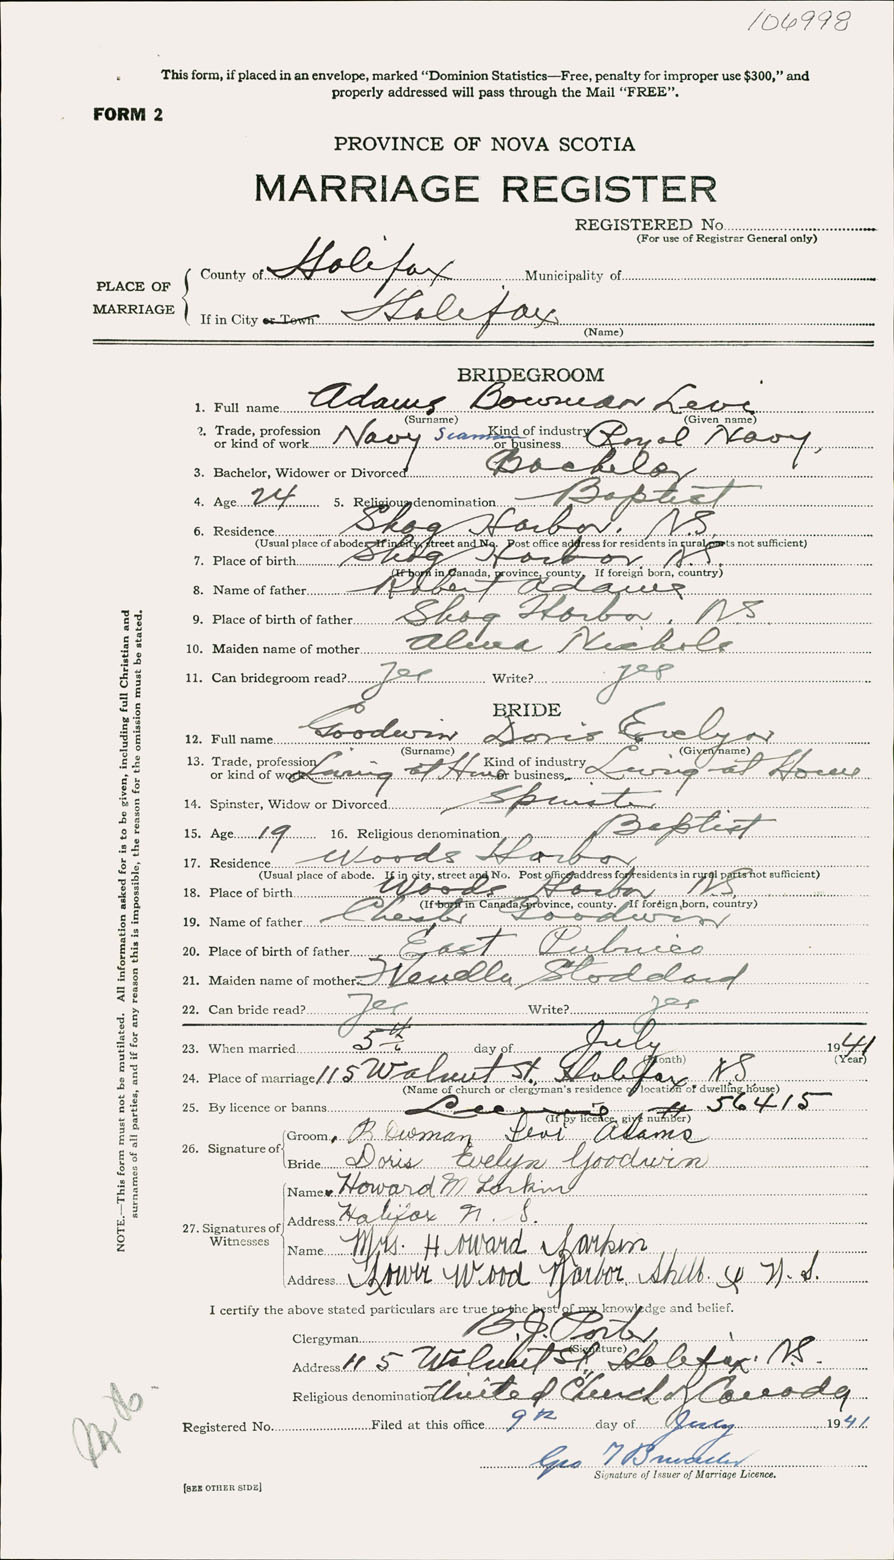 106998
This form, if placed in an envelope, marked "Dominion Statistics—Free, penalty for improper use $300," and
properly addressed will pass through the Mail "FREE".
FORM 2
PROVINCE OF NOVA SCOTIA
MARRIAGE REGISTER
REGISTERED No.
(For use of Registrar General only)
PLACE OF MARRIAGE
County of Halifax Municipality of
If in City or Town Halifax
(Name)
BRIDEGROOM
1. Full name Adams Bowman Levi
(Surname) (Given name)
2. Trade, profession or kind of work Navy Seaman Kind of industry or business Royal Navy
3. Bachelor, Widower or Divorced Bachelor
4. Age 24 5. Religious denomination Baptist
6. Residence Shag Harbor, N.S.
(Usual place of abode. If in city, street and No. Post office address for residents in rural parts not sufficient)
7. Place of birth Shag Harbor, N.S.
(If born in Canada, province, county. If foreign born, country)
8. Name of father Robert Adams
9. Place of birth of father Shag Harbor, N.S.
10. Maiden name of mother Nichols
11. Can bridegroom read? Yes Write? yes
BRIDE
12. Full name Goodwin Doris Evelyn
(Surname) (Given name)
13. Trade, profession or kind of work Living at Home Kind of industry or business Living at Home
14. Spinster, Widow or Divorced Spinster
15. Age 19 16. Religious denomination Baptist
17. Residence Woods Harbor
(Usual place of abode. If in city, street and No. Post office address for residents in rural parts not sufficient)
18. Place of birth Woods Harbor N.S.
(If born in Canada, province, county. If foreign born, country)
19. Name of father Chester Goodwin
20. Place of birth of father East Pubnico
21. Maiden name of mother Stoddard
22. Can bride read? Yes Write? yes
23. When married 5th day of July 1941
(Month) (Year)
24. Place of marriage 115 Walnut St., Halifax, N.S.
(Name of church or clergyman's residence or location of dwelling house)
25. By licence or banns License # 56415
(If by licence, give number)
26. Signature of Groom, Bowman Levi Adams
Bride Doris Evelyn Goodwin
27. Signatures of Witnesses
Name Howard M Larkin
Address Halifax N. S.
Name Mrs. Howard Larkin
Address Lower Wood Harbor, Shelb. Co N. S.
I certify the above stated particulars are true to the best of my knowledge and belief.
Clergyman B.J. Porter
(Signature)
Address 115 Walnut St., Halifax, N.S.
Religious denomination United Church of Canada
Registered No. Filed at this office 9th day of July 1941
Geo
Signature of Issuer of Marriage Licence.
[SEE OTHER SIDE]
NOTE.—This form must not be mutilated. All information asked for is to be given, including full Christian and
surnames of all parties, and if for any reason this is impossible, the reason for the omission must be stated.